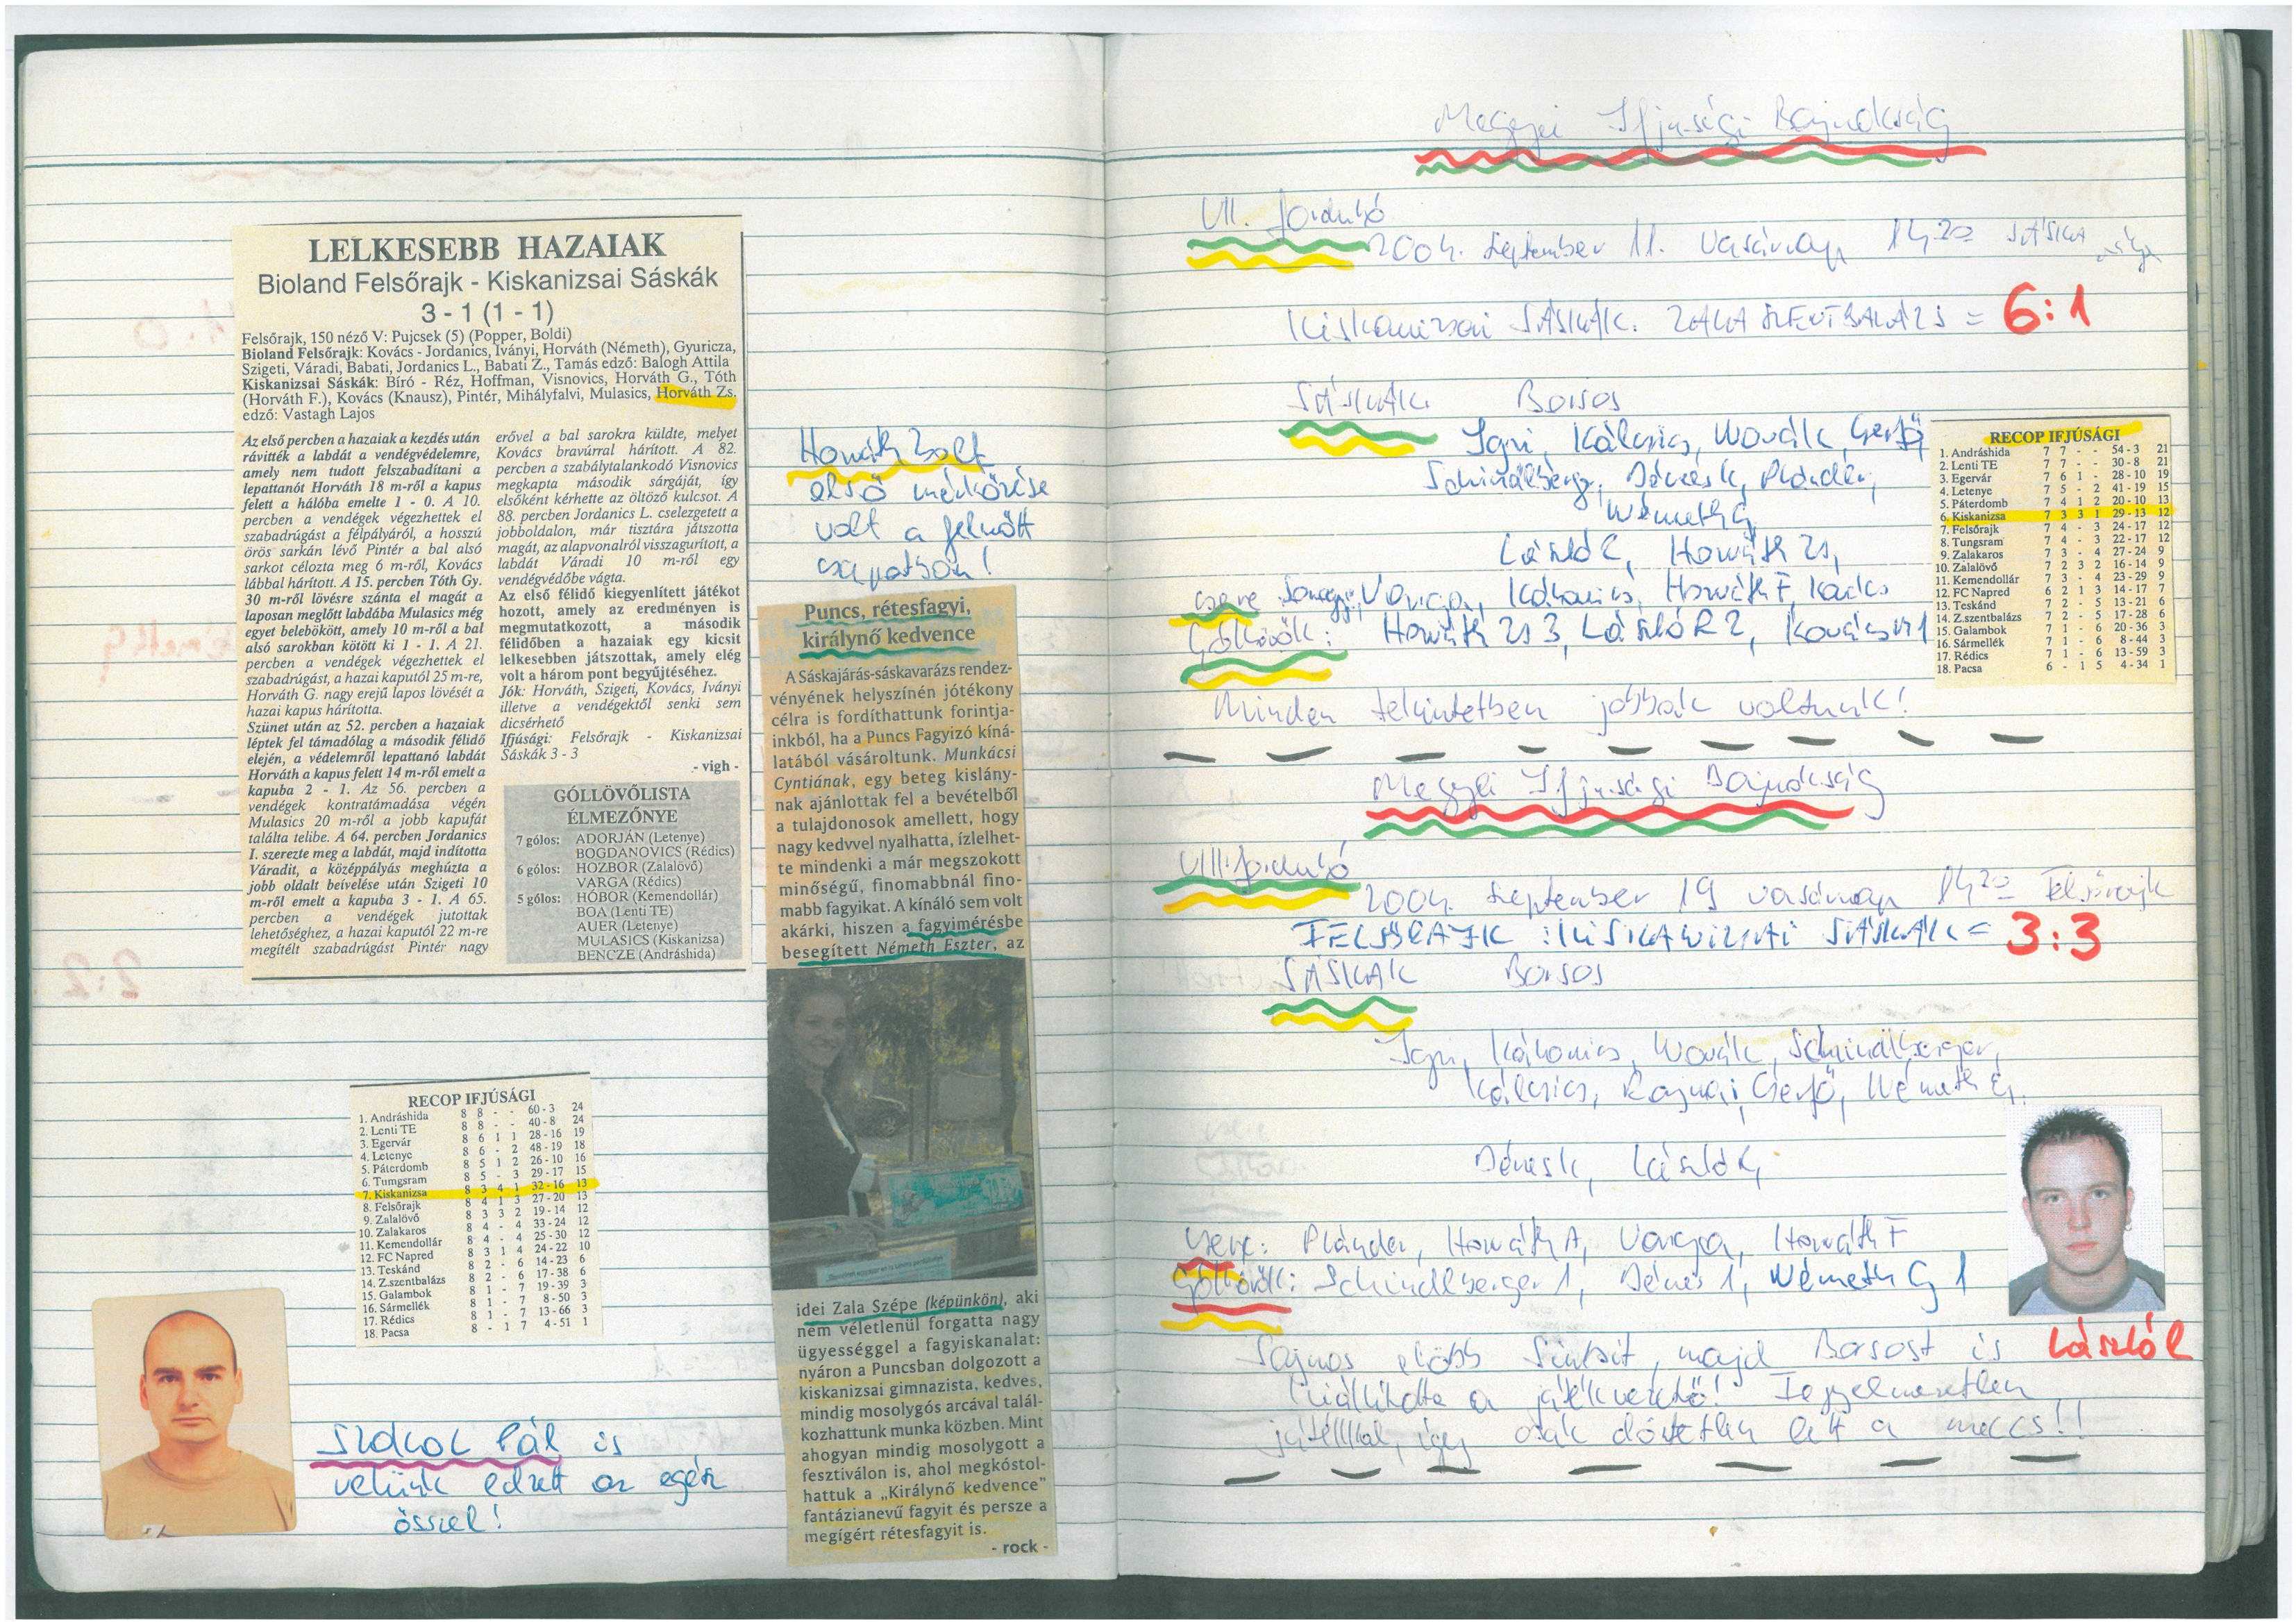 LELKESEBB HAZAIAK
Bioland Felsőrajk - Kiskanizsai Sáskák
3 - 1 (1 - 1)
Felsőrajk, 150 néző V: Pujcsek (5) (Popper, Boldi)
Bioland Felsőrajk: Kovács - Jordanics, Iványi, Horváth (Németh), Gyuricza,
Szigeti, Váradi, Babati, Jordanics L., Babati Z., Tamás edző: Balogh Attila
Kiskanizsai Sáskák: Bíró - Réz, Hoffman, Visnovics, Horváth G., Tóth
(Horváth F.), Kovács (Knausz), Pintér, Mihályfalvi, Mulasics, Horváth Zs.
edző: Vastagh Lajos
Az első percben a hazaiak a kezdés után
rávitték a labdát a vendégvédelemre,
amely nem tudott felszabadítani a
lepattanót Horváth 18 m-ről a kapus
felett a hálóba emelte 1 - 0. A 10.
percben a vendégek végezhettek el
szabadrúgást a félpályáról, a hosszú
örös sarkán lévő Pintér a bal alsó
sarkot célozta meg 6 m-ről, Kovács
lábbal hárított. A 15. percben Tóth Gy.
30 m-ről lövésre szánta el magát a
laposan meglőtt labdába Mulasics még
egyet belebökött, amely 10 m-ről a bal
alsó sarokban kötött ki 1 - 1. A 21.
percben a vendégek végezhettek el
szabadrúgást, a hazai kaputól 25 m-re,
Horváth G. nagy erejű lapos lövését a
hazai kapus hárította.
Szünet után az 52. percben a hazaiak
léptek fel támadólag a második félidő
elején, a védelemről lepattanó labdát
Horváth a kapus felett 14 m-ről emelt a
kapuba 2 - 1. Az 56. percben a
vendégek kontratámadása végén
Mulasics 20 m-ről a jobb kapufát
találta telibe. A 64. percben Jordanics
I. szerezte meg a labdát, majd indította
Váradit, a középpályás meghúzta a
jobb oldalt beívelése után Szigeti 10
m-ről emelt a kapuba 3 - 1. A 65.
percben a vendégek jutottak
lehetőséghez, a hazai kaputól 22 m-re
megítélt szabadrúgást Pintér nagy
erővel a bal sarokra küldte, melyet
Kovács bravúrral hárított. A 82.
percben a szabálytalankodó Visnovics
megkapta második sárgáját, így
elsőként kérhette az öltöző kulcsot. A
88. percben Jordanics L. cselezgetett a
jobboldalon, már tisztára játszotta
magát, az alapvonalról visszagurított, a
labdát Váradi 10 m-ről egy
vendégvédőbe vágta.
Az első félidő kiegyenlített játékot
hozott, amely az eredményen is
megmutatkozott, a második
félidőben a hazaiak egy kicsit
lelkesebben játszottak, amely elég
volt a három pont begyűjtéséhez.
Jók: Horváth, Szigeti, Kovács, Iványi
illetve a vendégektől senki sem
dicsérhető
Ifjúsági: Felsőrajk - Kiskanizsai
Sáskák 3 - 3
- vigh -
GÓLLÖVŐLISTA
ÉLMEZŐNYE
7 gólos: ADORJÁN (Letenye)
BOGDANOVICS (Rédics)
6 gólos: HOZBOR (Zalalövő)
VARGA (Rédics)
5 gólos: HÓBOR (Kemendollár)
BOA (Lenti TE)
AUER (Letenye)
MULASICS (Kiskanizsa)
BENCZE (Andráshida)
Horváth Zsolt
első mérkőzése
volt a felnőtt
csapatban!
Puncs, rétesfagyi,
királynő kedvence
A Sáskajárás-sáskavarázs rendez-
vényének helyszínén jótékony
célra is fordíthattunk forintja-
inkból, ha a Puncs Fagyizó kíná-
latából vásároltunk. Munkácsi
Cyntiának, egy beteg kislány-
nak ajánlottak fel a bevételből
a tulajdonosok amellett, hogy
nagy kedvvel nyalhatta, ízlelhet-
te mindenki a már megszokott
minőségű, finomabbnál fino-
mabb fagyikat. A kínáló sem volt
akárki, hiszen a fagyimérésbe
besegített Németh Eszter, az
idei Zala Szépe (képünkön), aki
nem véletlenül forgatta nagy
ügyességgel a fagyiskanalat:
nyáron a Puncsban dolgozott a
kiskanizsai gimnazista, kedves,
mindig mosolygós arcával talál-
kozhattunk munka közben. Mint
ahogyan mindig mosolygott a
fesztiválon is, ahol megkóstol-
hattuk a „Királynő kedvence”
fantázianevű fagyit és persze a
megígért rétesfagyit is.
- rock -
RECOP IFJÚSÁGI
1. Andráshida 8 8 - - 60-3 24
2. Lenti TE 8 8 - - 40-8 24
3. Egervár 8 6 1 1 28-16 19
4. Letenye 8 6 - 2 48-19 18
5. Páterdomb 8 5 1 2 26-10 16
6. Tumgsram 8 5 - 3 29-17 15
7. Kiskanizsa 8 3 4 1 32-16 13
8. Felsőrajk 8 4 1 3 27-20 13
9. Zalalövő 8 3 3 2 19-14 12
10. Zalakaros 8 4 - 4 33-24 12
11. Kemendollár 8 4 - 4 25-30 12
12. FC Napred 8 3 1 4 24-22 10
13. Teskánd 8 2 - 6 14-23 6
14. Z.szentbalázs 8 2 - 6 17-38 6
15. Galambok 8 1 - 7 19-39 3
16. Sármellék 8 1 - 7 8-50 3
17. Rédics 8 1 - 7 13-66 3
18. Pacsa 8 - 1 7 4-51 1
Szokol Pál is
velünk edzett az egész
ősszel!
Megyei Ifjúsági Bajnokság
VII. forduló
2004. szeptember 11. vasárnap 14 30 SÁSKA
Kiskanizsai SÁSKÁK: ZALASZENTBALÁZS = 6:1
SÁSKÁK: Borsos
Igri, Kálcsics, Novák, Cserfő
Schindlberger, Dénes K, Plánder,
Németh G
László R, Horváth Zs,
csere: Somogyi, Varga, Káhonics, Horváth F, Kovács
Góllövők: Horváth Zs 3, László R 2, Kovács M 1
RECOP IFJÚSÁGI
1. Andráshida 7 7 - - 54-3 21
2. Lenti TE 7 7 - - 30-8 21
3. Egervár 7 6 1 - 28-10 19
4. Letenye 7 5 - 2 41-19 15
5. Páterdomb 7 4 1 2 20-10 13
6. Kiskanizsa 7 3 3 1 29-13 12
7. Felsőrajk 7 4 - 3 24-17 12
8. Tungsram 7 4 - 3 22-17 12
9. Zalakaros 7 3 - 4 27-24 9
10. Zalalövő 7 2 3 2 16-14 9
11. Kemendollár 7 3 - 4 23-29 9
12. FC Napred 6 2 1 3 14-17 7
13. Teskánd 7 2 - 5 13-21 6
14. Z.szentbalázs 7 2 - 5 17-28 6
15. Galambok 7 1 - 6 20-36 3
16. Sármellék 7 1 - 6 8-44 3
17. Rédics 7 1 - 6 13-59 3
18. Pacsa 6 - 1 5 4-34 1
Minden tekintetben jobbak voltunk!
Megyei Ifjúsági Bajnokság
VIII. forduló
2004. szeptember 19 vasárnap 14 30 Felsőrajk
FELSŐRAJK : KISKANIZSAI SÁSKÁK = 3:3
SÁSKÁK Borsos
Igri, Káhonics, Novák, Schindlberger,
Kálcsics, Rajnai, Cserfő, Németh G,
Dénes K, László R,
csere: Plánder, Horváth A, Varga, Horváth F
Góllövők: Schindlberger 1, Dénes 1, Németh G 1
Sajnos előbb majd Borsost is
kiállította a játékvezető! Fegyelmezetlen
játékkal, így csak döntetlen lett a meccs!!
László R